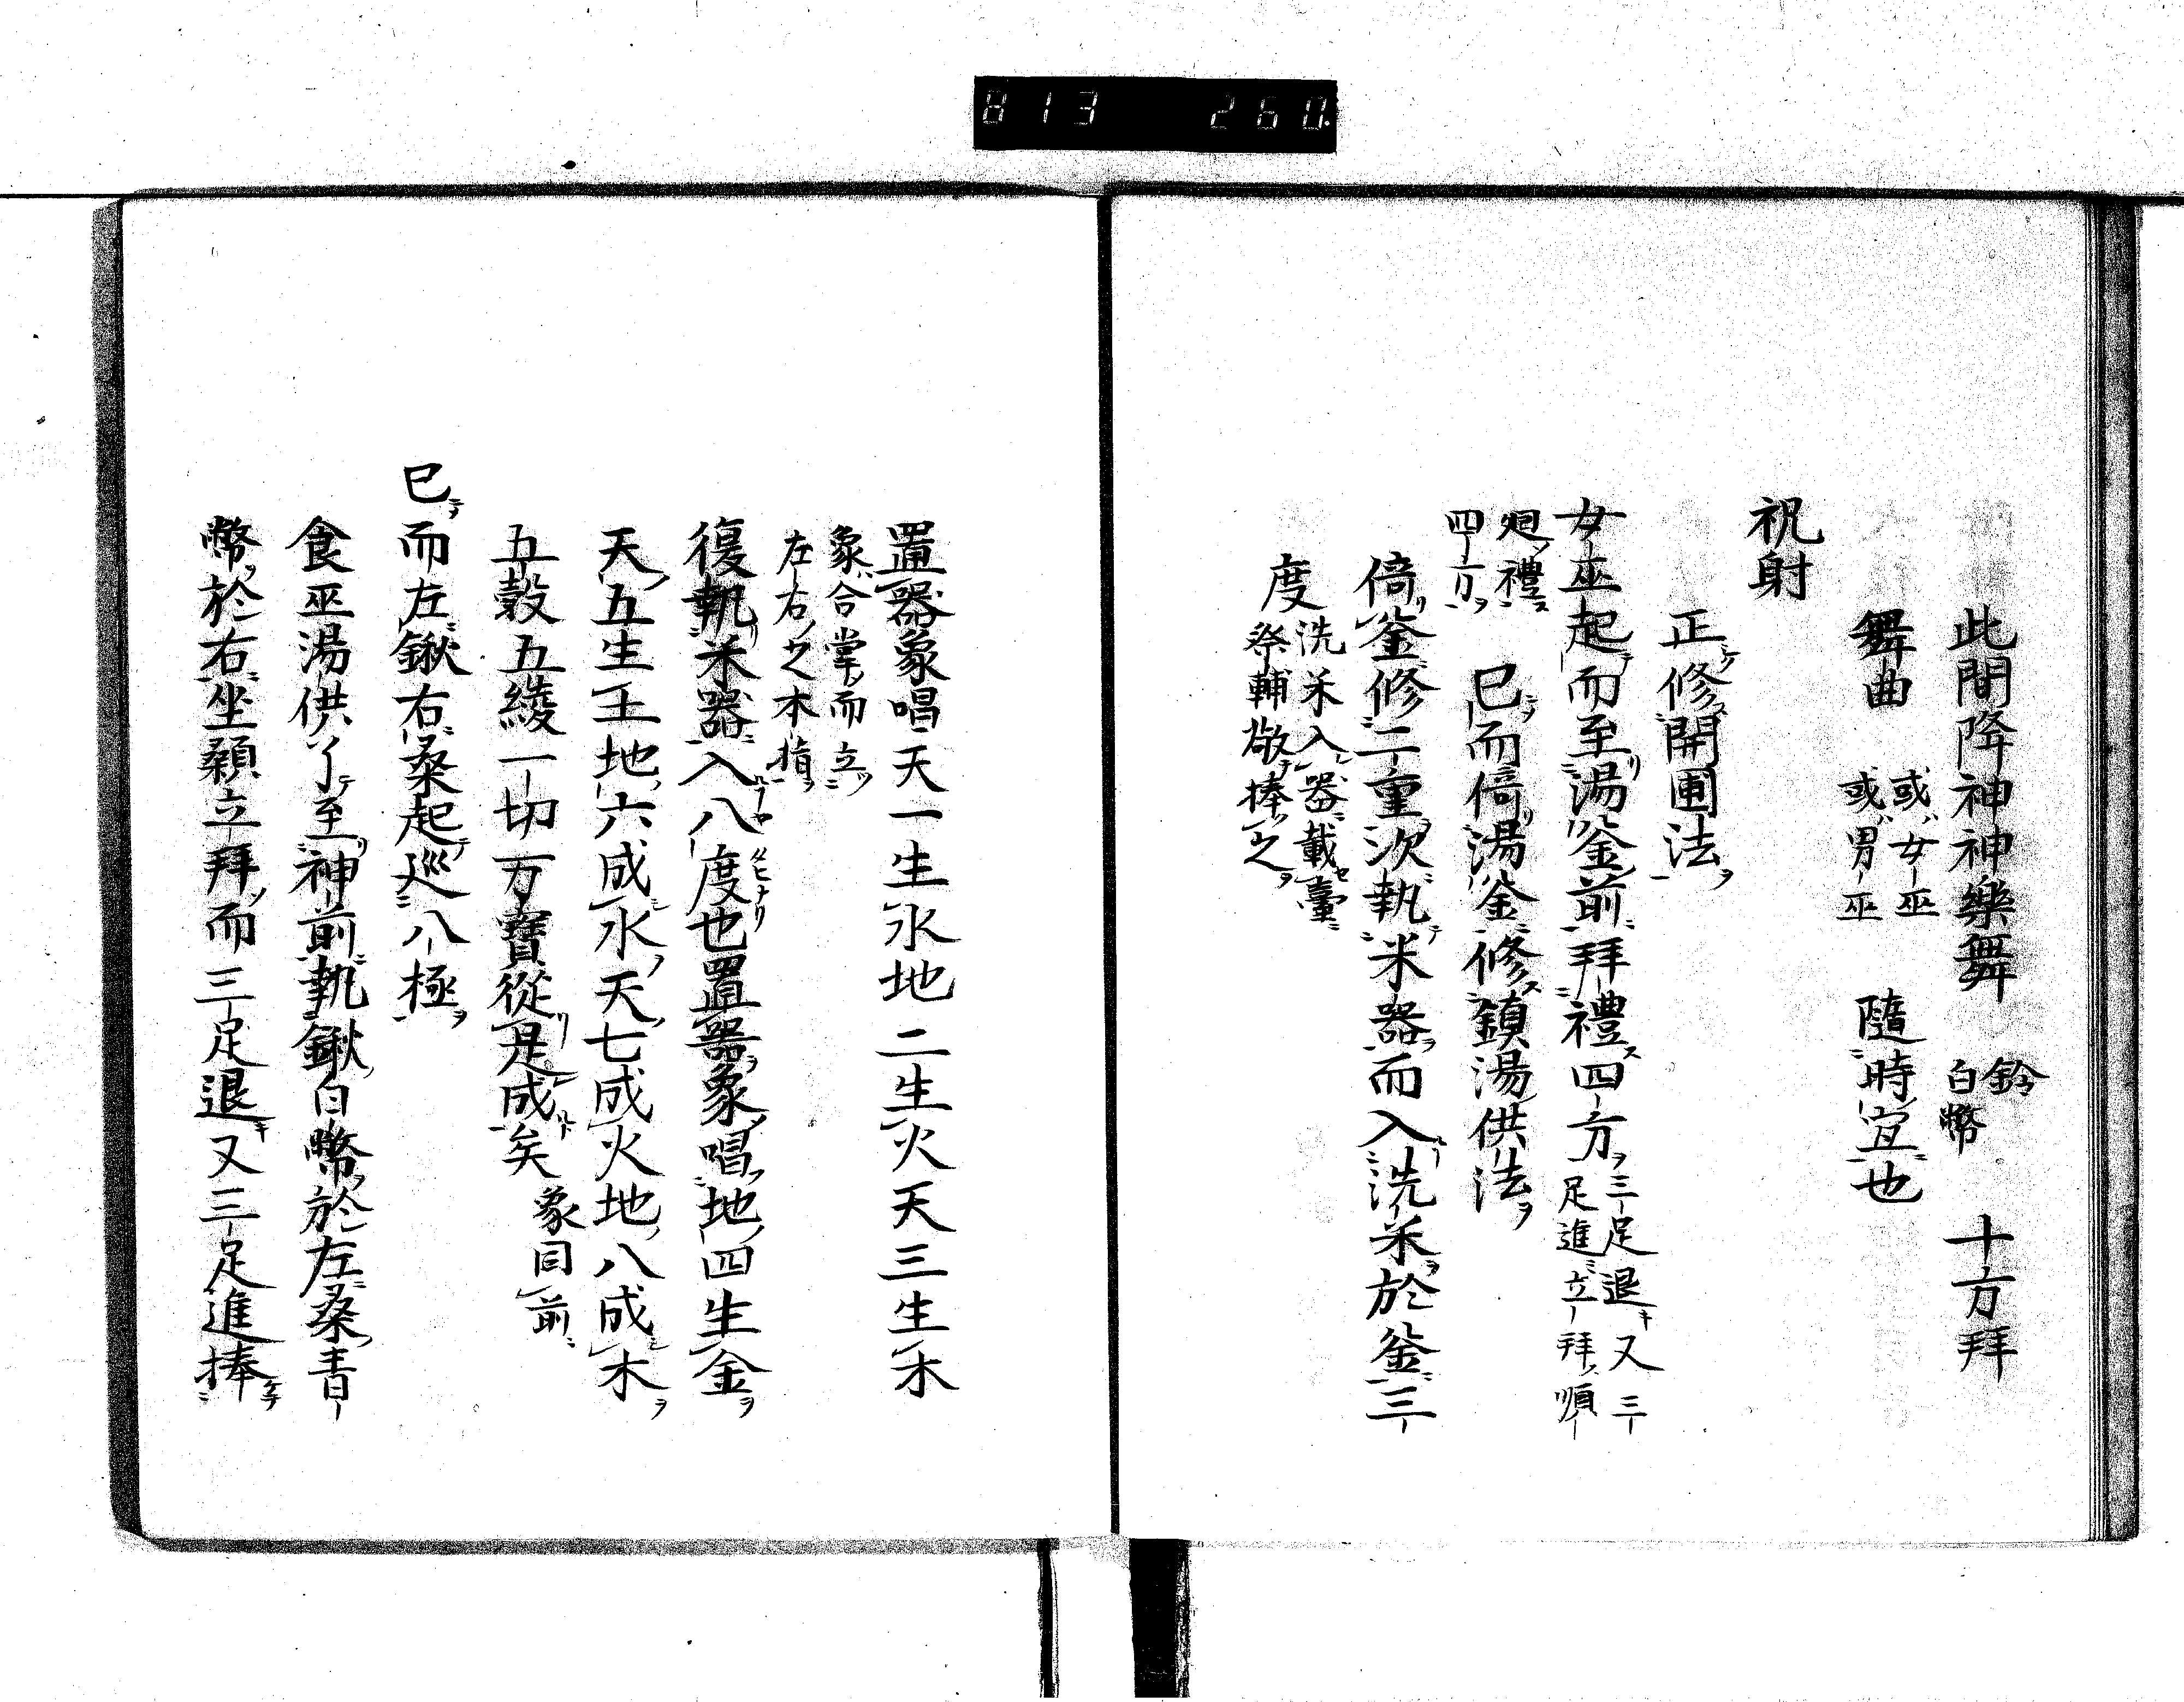 813 260.
此間降神神樂舞 鈴白幣 十方拜
舞曲 或女巫 或男巫 隨時宜也
祝射
正修開圃法
女巫起而至湯釜前拜禮四方 三足退又三足進立拜順
廻禮四方 已而倚湯釜修鎮湯供法
倚釜修二重次執米器而入洗米於釜三
度 洗米入器載臺 祭輔敬捧之
置器象唱天一生水地二生火天三生木
象合掌而立
左右之本指
復執米器入八度也置器象唱地四生金
天五生土地六成水天七成火地八成木
五穀五綾一切万寶從是成矣 象同前
已而左鍬右桑起巡八極
食巫湯供了至神前執鍬白幣於左桑青
幣於右坐顙立拜而三足退又三足進捧